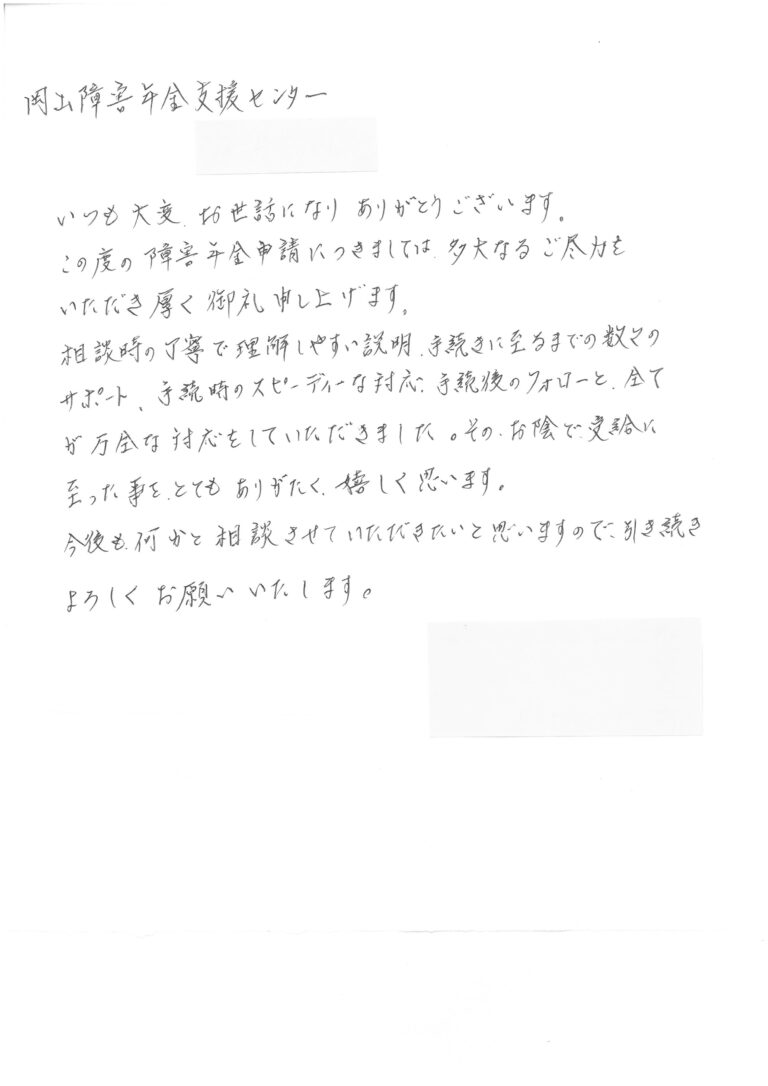 岡山障害年金支援センター
いつも大変、お世話になり ありがとうございます。
この度の障害年金申請につきましては、多大なるご尽力を
いただき厚く御礼申し上げます。
相談時の丁寧で理解しやすい説明、手続きに至るまでの数々の
サポート、手続時のスピーディーな対応、手続後のフォローと、全て
が万全な対応をしていただきました。その、お陰で、受給に
至った事を、とても ありがたく、嬉しく思います。
今後も、何かと相談させていただきたいと思いますので、引き続き
よろしくお願いいたします。